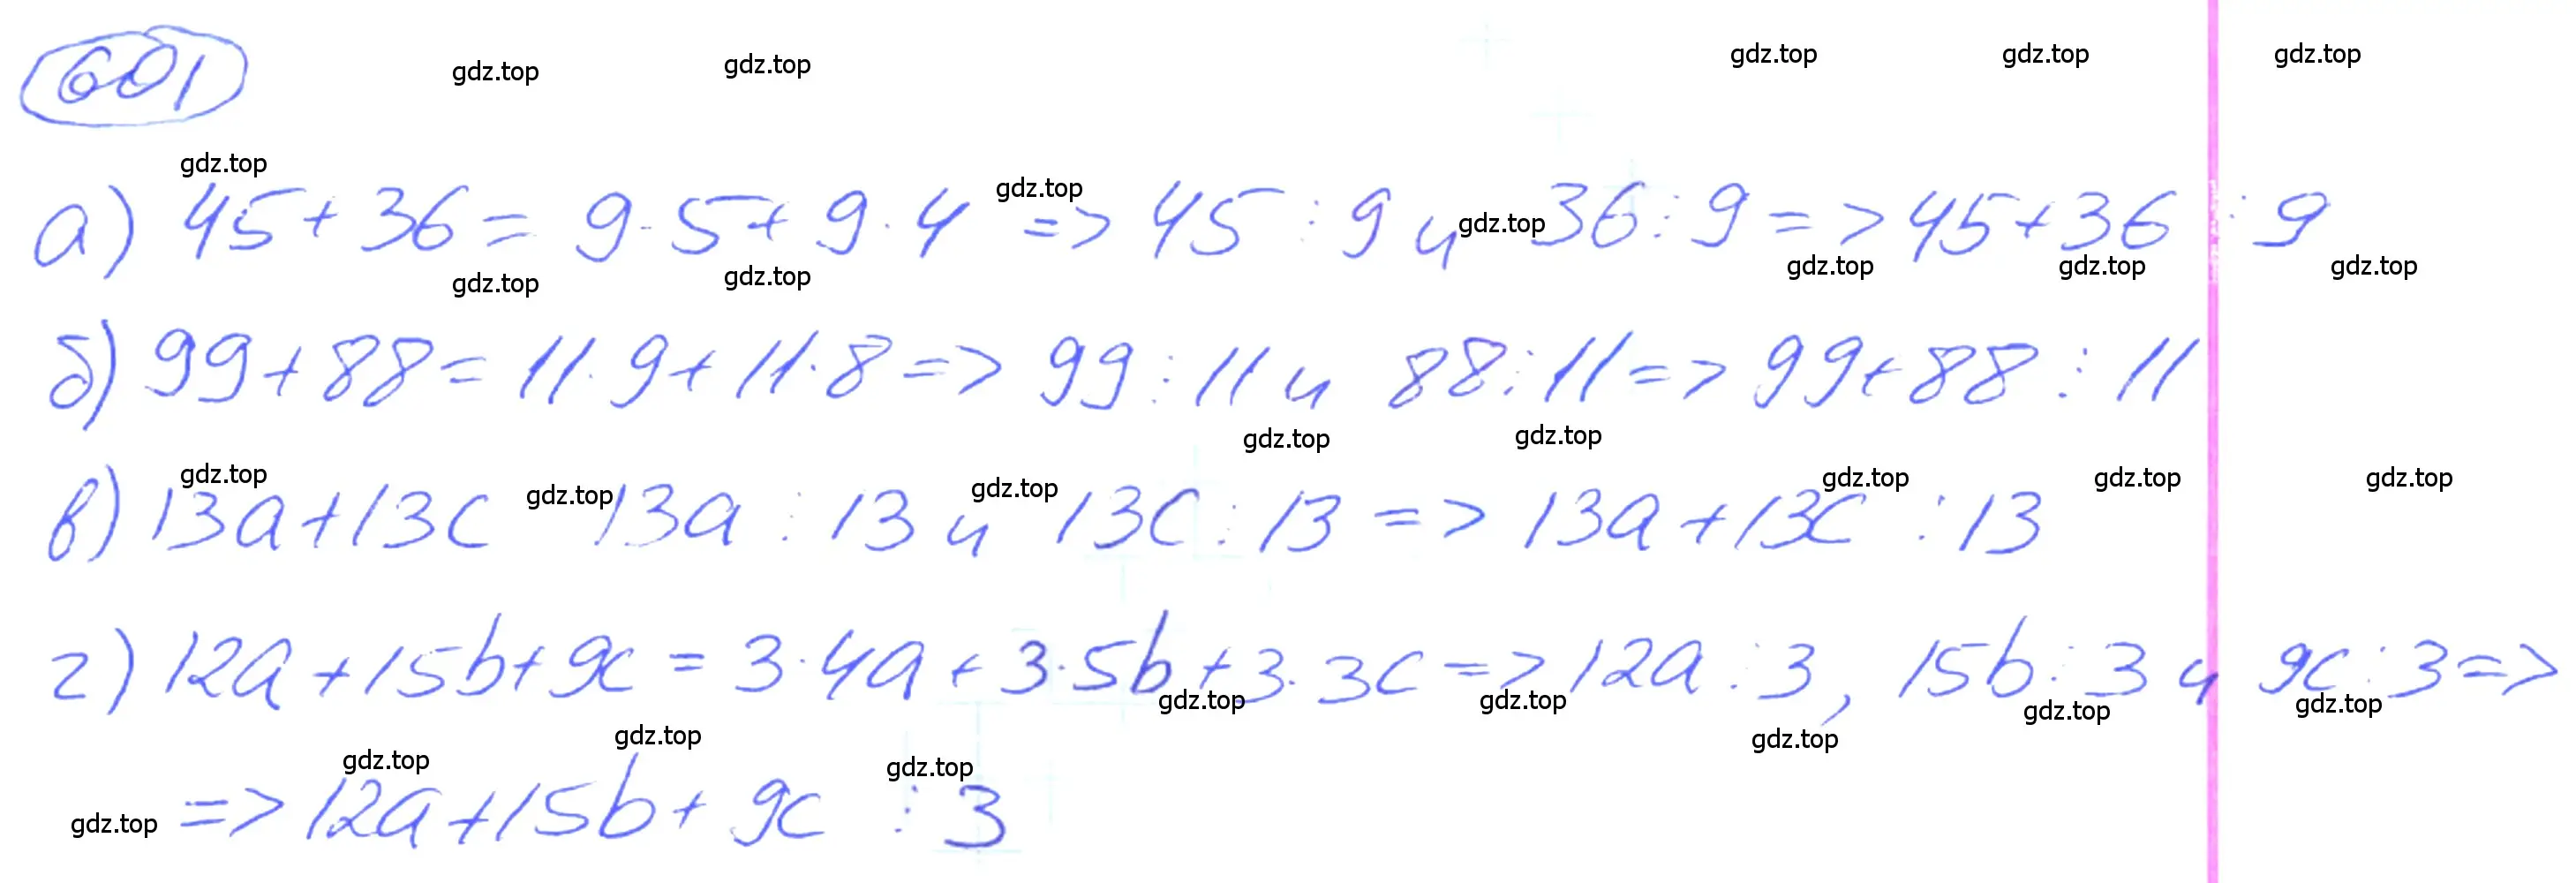 601
gdz.top gdz.top gdz.top gdz.top gdz.top
gdz.top gdz.top gdz.top
а) 45+36= 9·5+9·4 => 45 ⋮ 9 и 36 ⋮ 9 => 45+36 ⋮ 9
gdz.top gdz.top gdz.top gdz.top gdz.top
б) 99+88= 11·9+11·8 => 99 ⋮ 11 и 88 ⋮ 11 => 99+88 ⋮ 11
gdz.top gdz.top
gdz.top gdz.top gdz.top gdz.top gdz.top gdz.top
в) 13a+13c 13a ⋮ 13 и 13c ⋮ 13 => 13a+13c ⋮ 13
г) 12a+15b+9c = 3·4a+3·5b+3·3c => 12a ⋮ 3, 15b ⋮ 3 и 9c ⋮ 3 =>
gdz.top gdz.top gdz.top gdz.top gdz.top
gdz.top gdz.top gdz.top
gdz.top => 12a+15b+9c ⋮ 3